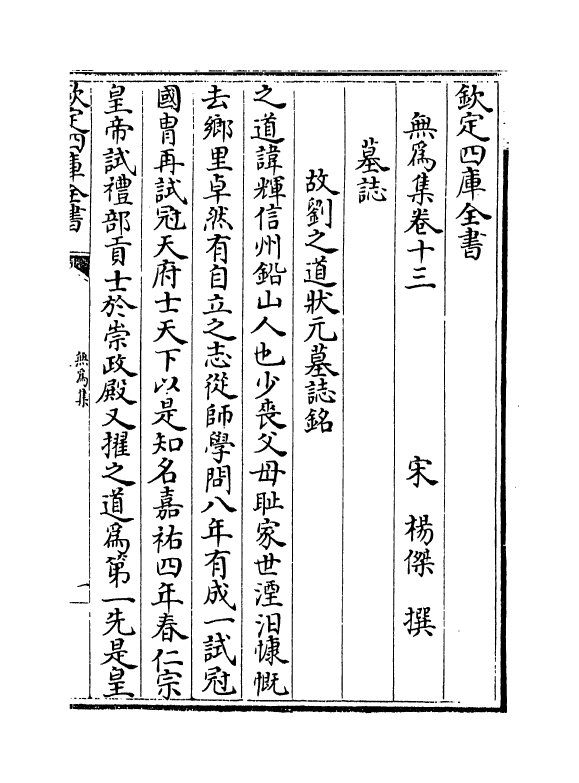 欽定四庫全書
無為集卷十三　宋　楊傑　撰
墓誌
故劉之道狀元墓誌銘
之道諱輝信州鉛山人也少喪父母耻家世湮汨慷慨
去鄉里卓然有自立之志從師學問八年有成一試冠
國胄再試冠天府士天下以是知名嘉祐四年春仁宗
皇帝試禮部貢士於崇政殿又擢之道為第一先是皇
欽定四庫全書
無為集
一